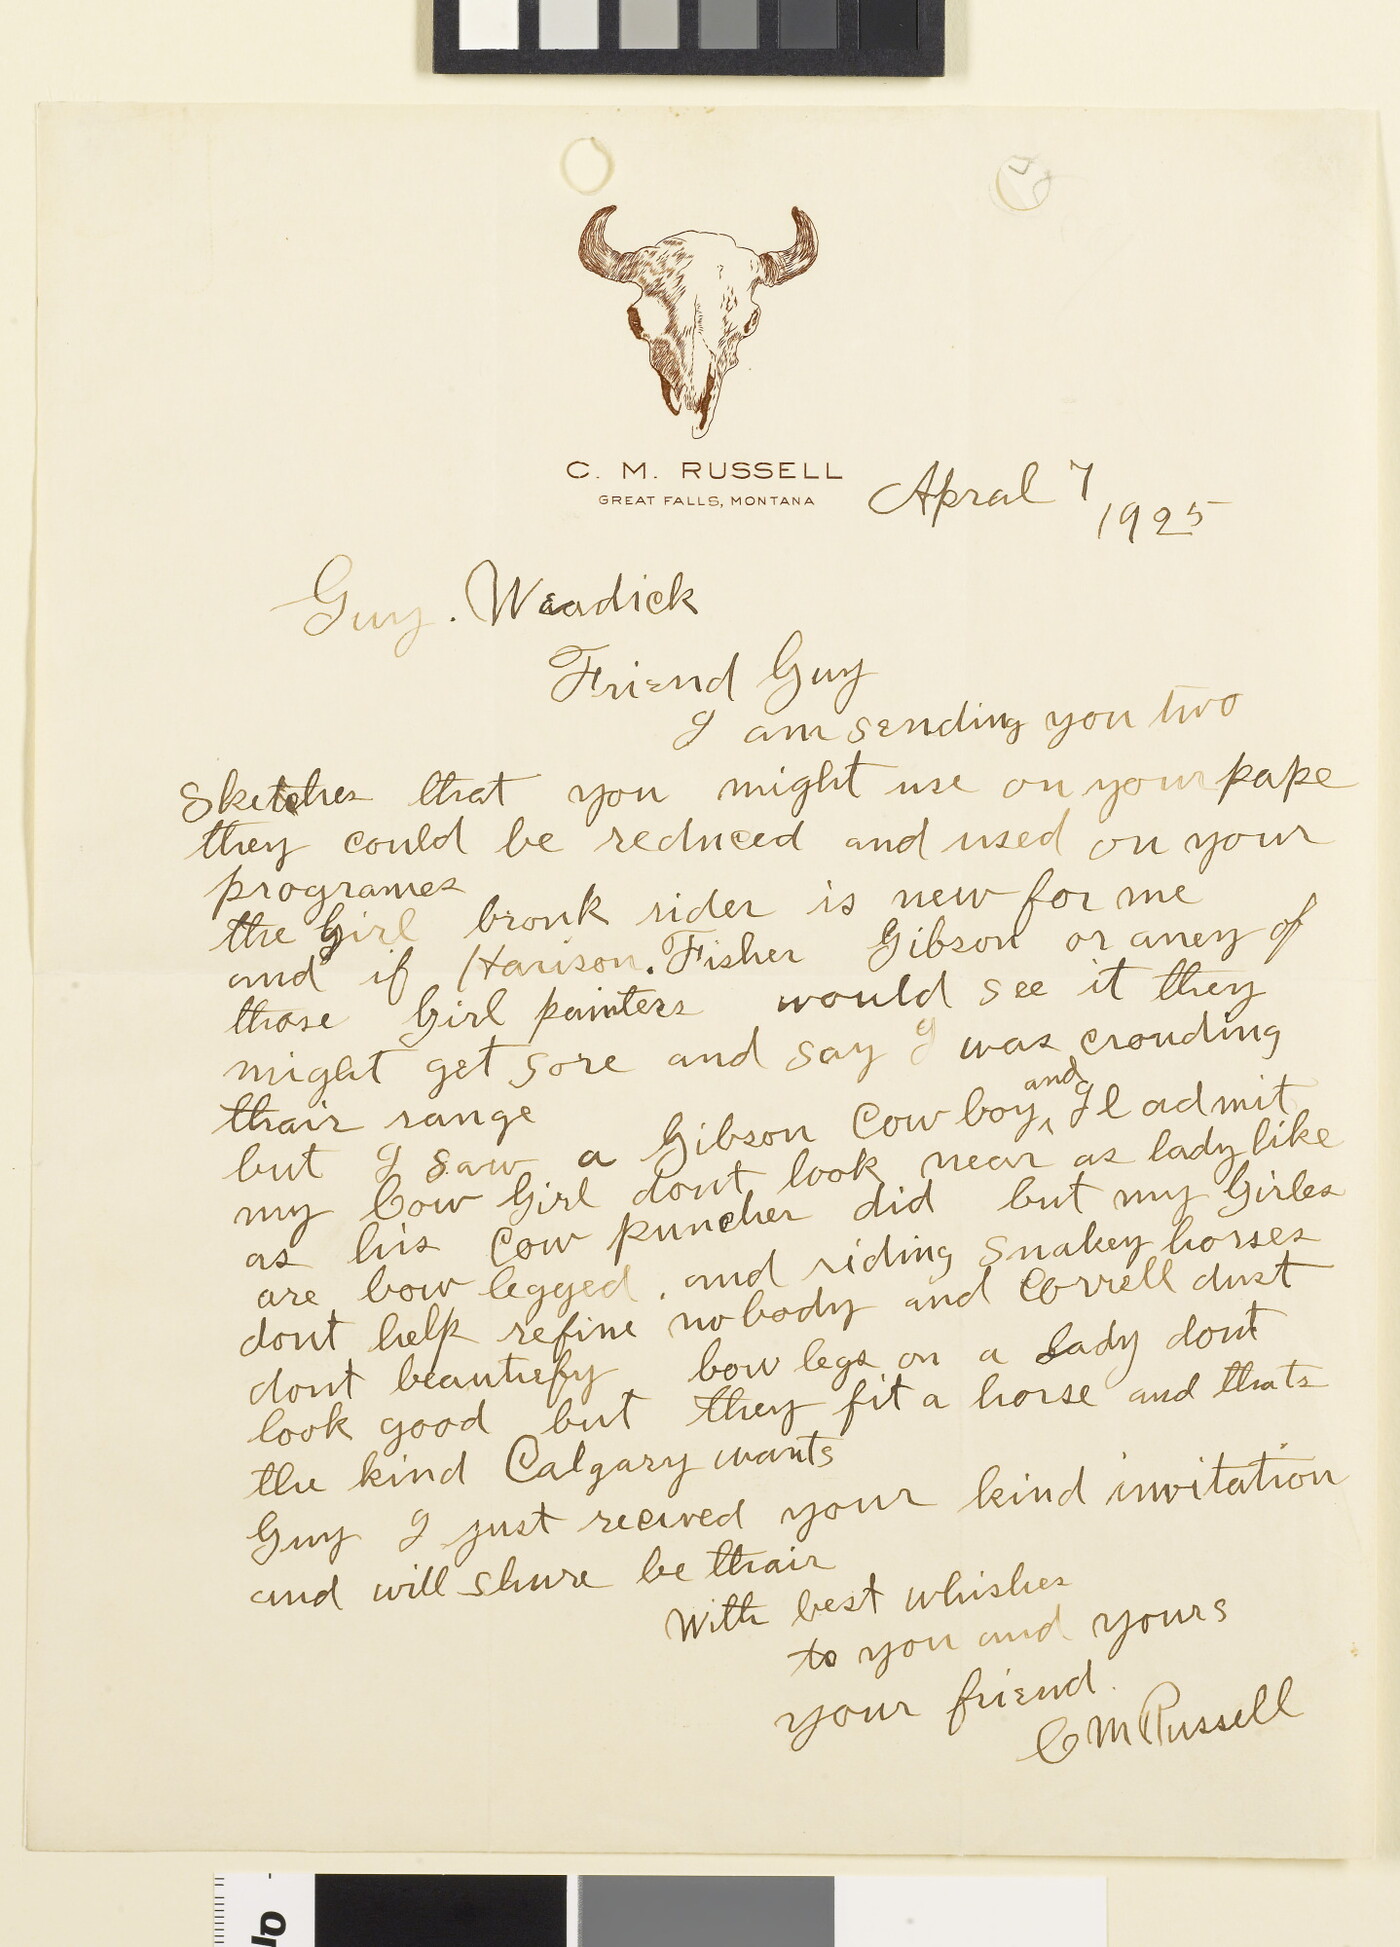 C. M. RUSSELL
GREAT FALLS, MONTANA
Apral 7
1925
Guy. Weadick
Friend Guy
I am sending you two
sketches that you might use on your pape
they could be reduced and used on your
programes
the Girl bronk rider is new for me
and if Harison. Fisher Gibson or aney of
those Girl painters would see it they
might get sore and say I was crouding
thair range
but I saw a Gibson Cow boy, and Il admit
my Cow Girl dont look near as lady like
as his Cow puncher did but my Girles
are bow legged. and riding snakey horses
dont help refine nobody and Correll dust
dont beautiefy bow legs on a Lady dont
look good but they fit a horse and thats
the kind Calgary wants
Guy I just recived your kind invitation
and will shure be thair
With best whishes
to you and yours
your friend.
C M Russell